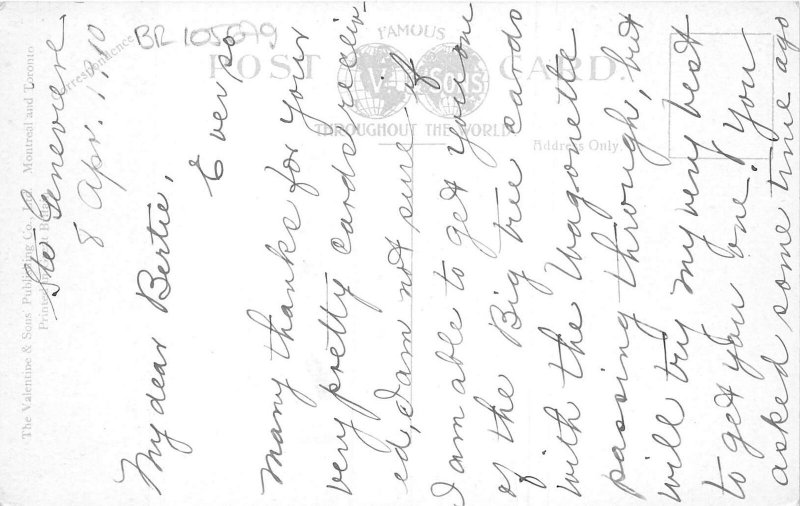 Ste Genevieve
8 Apr. 1910
My dear Bertie,
Ever so
many thanks for your
very pretty cards receiv-
ed, I am not sure if
I am able to get you one
of the Big tree cards
with the Wagonette
passing through, but
will try my very best
to get you one. You
asked some time ago
BR 105899
FAMOUS
POST CARD.
V SONS
THROUGHOUT THE WORLD
Correspondence.
Address Only.
The Valentine & Sons Publishing Co., Ltd. Montreal and Toronto
Printed in